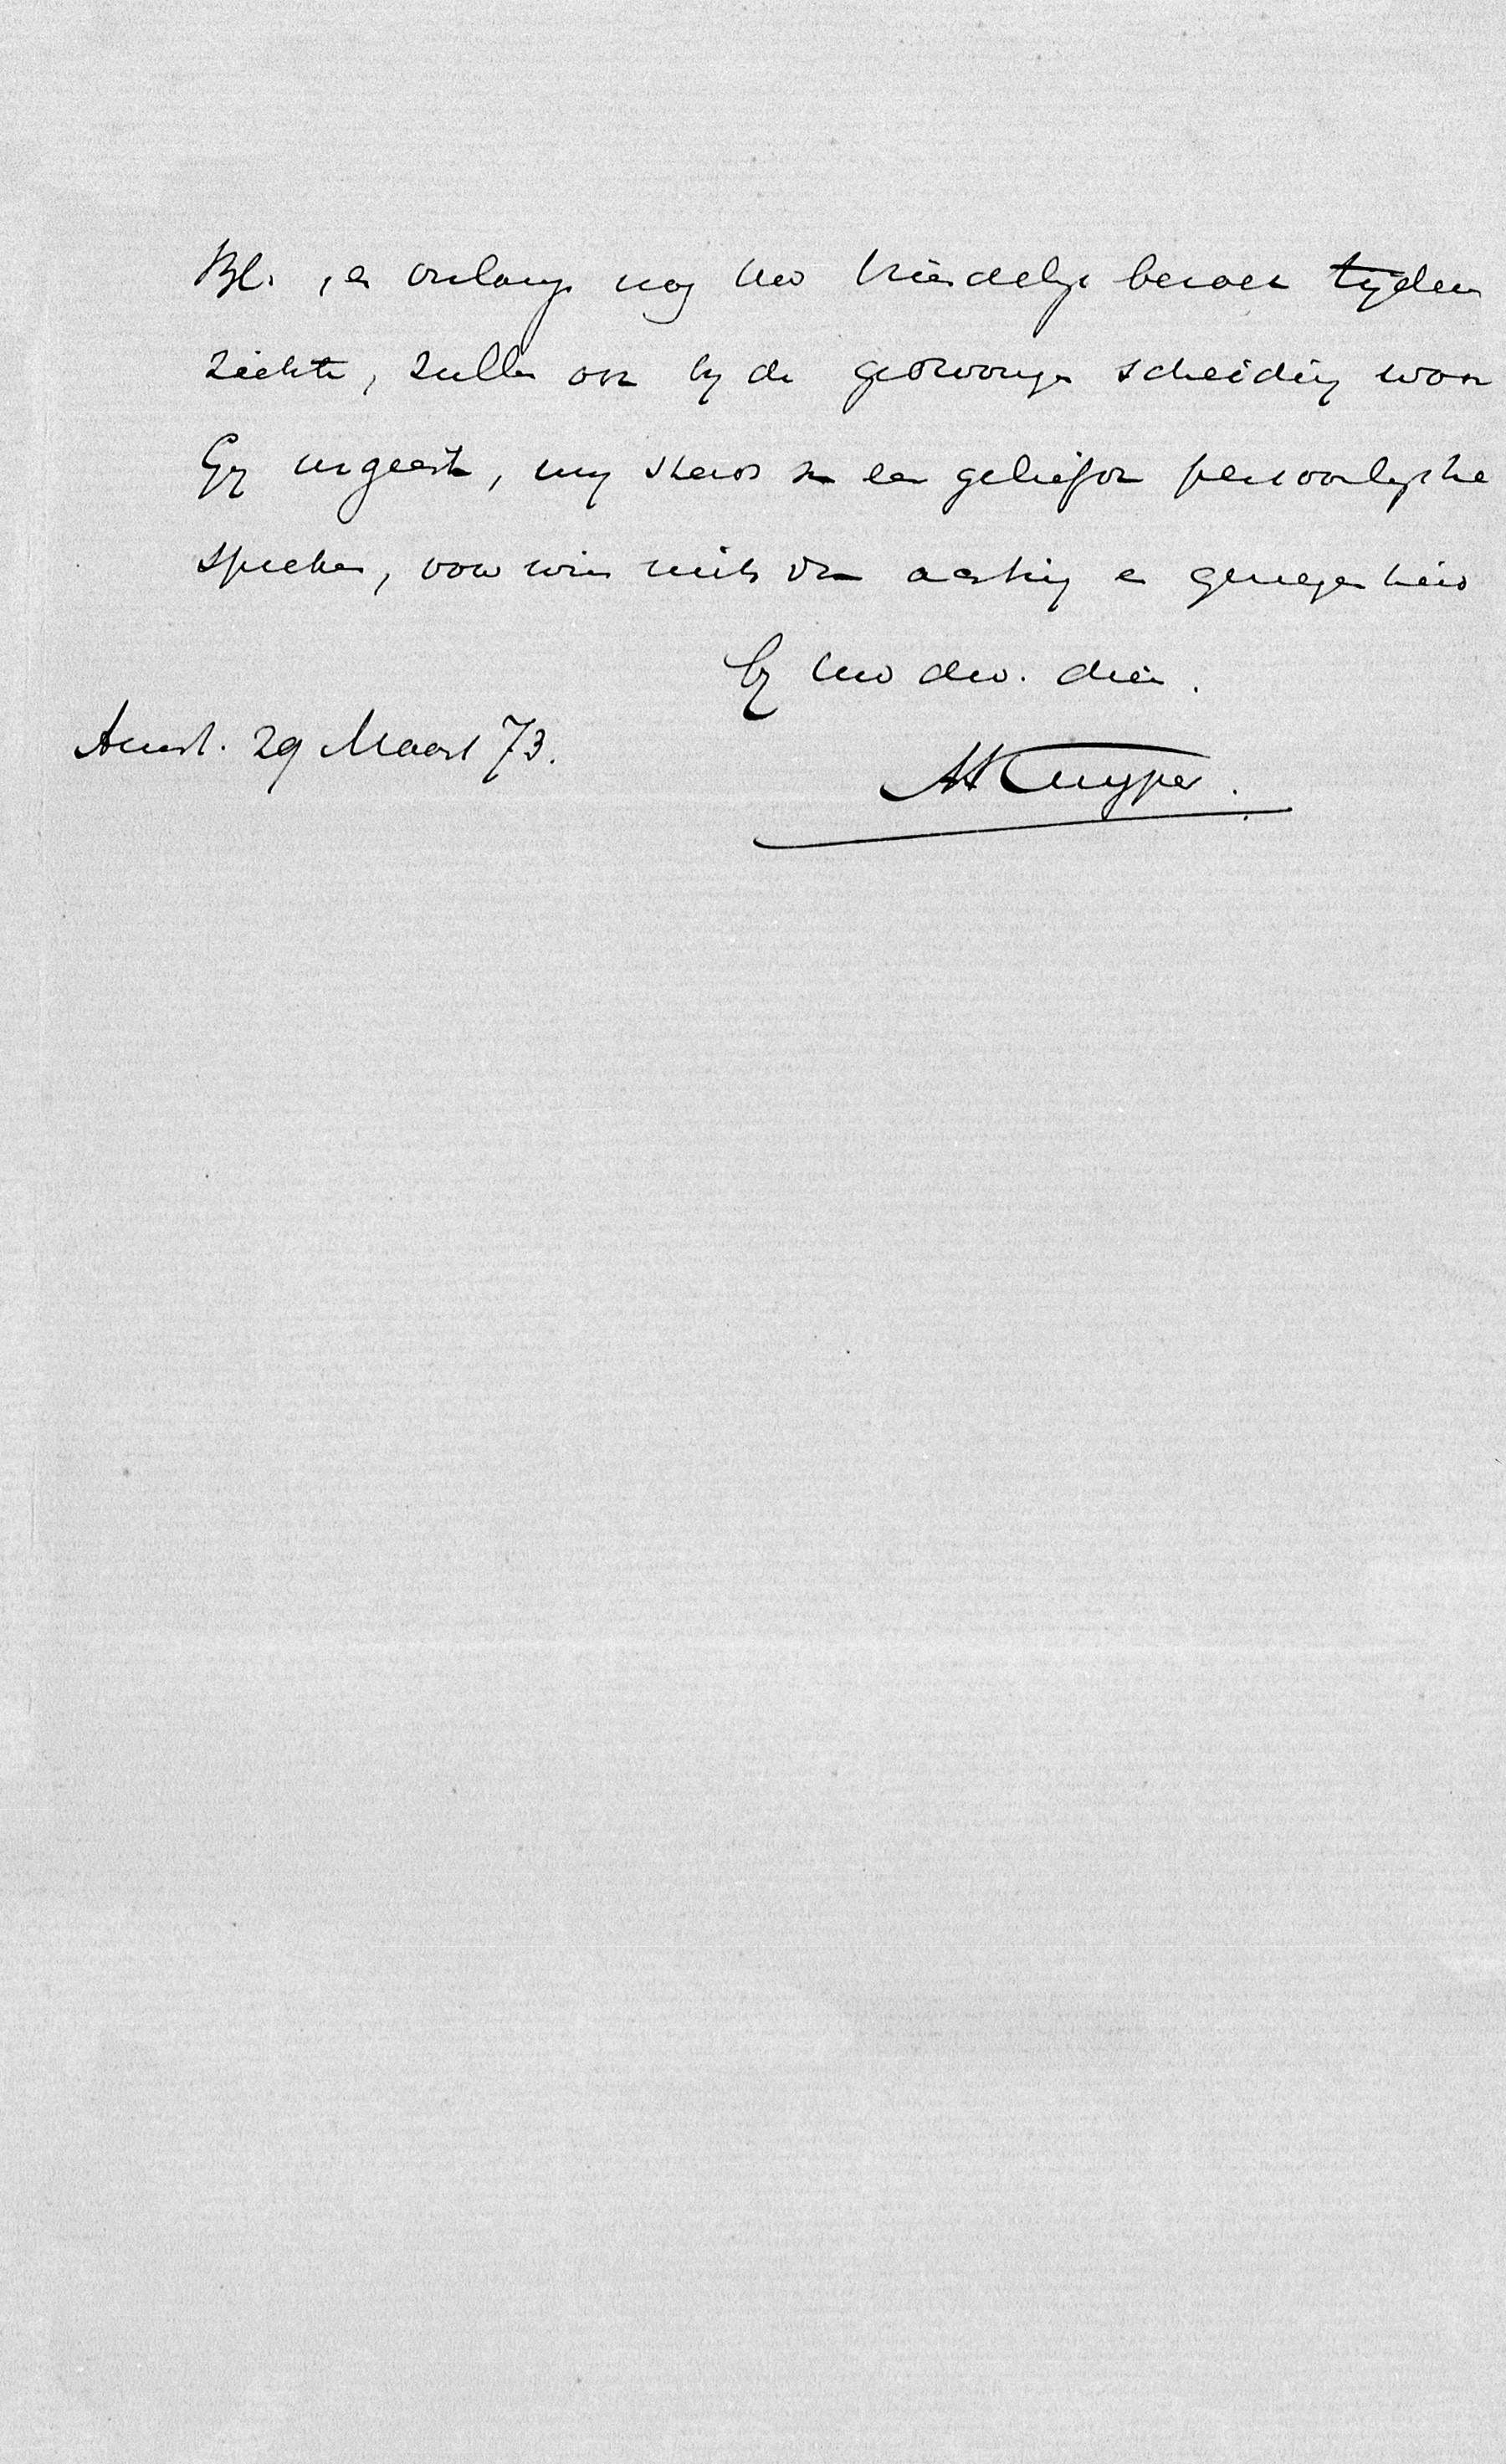 Bl., en onlangs nog Uw vriendelijk bezoek tijdens
ziekte, zullen ook bij de gedwongen scheiding waar
Gij , mij steeds en een persoonlijke
spreken, voor wien achting en genegenheid
bij Uw dw. dien.
Amst. 29 Maart 73.
AKuyper.